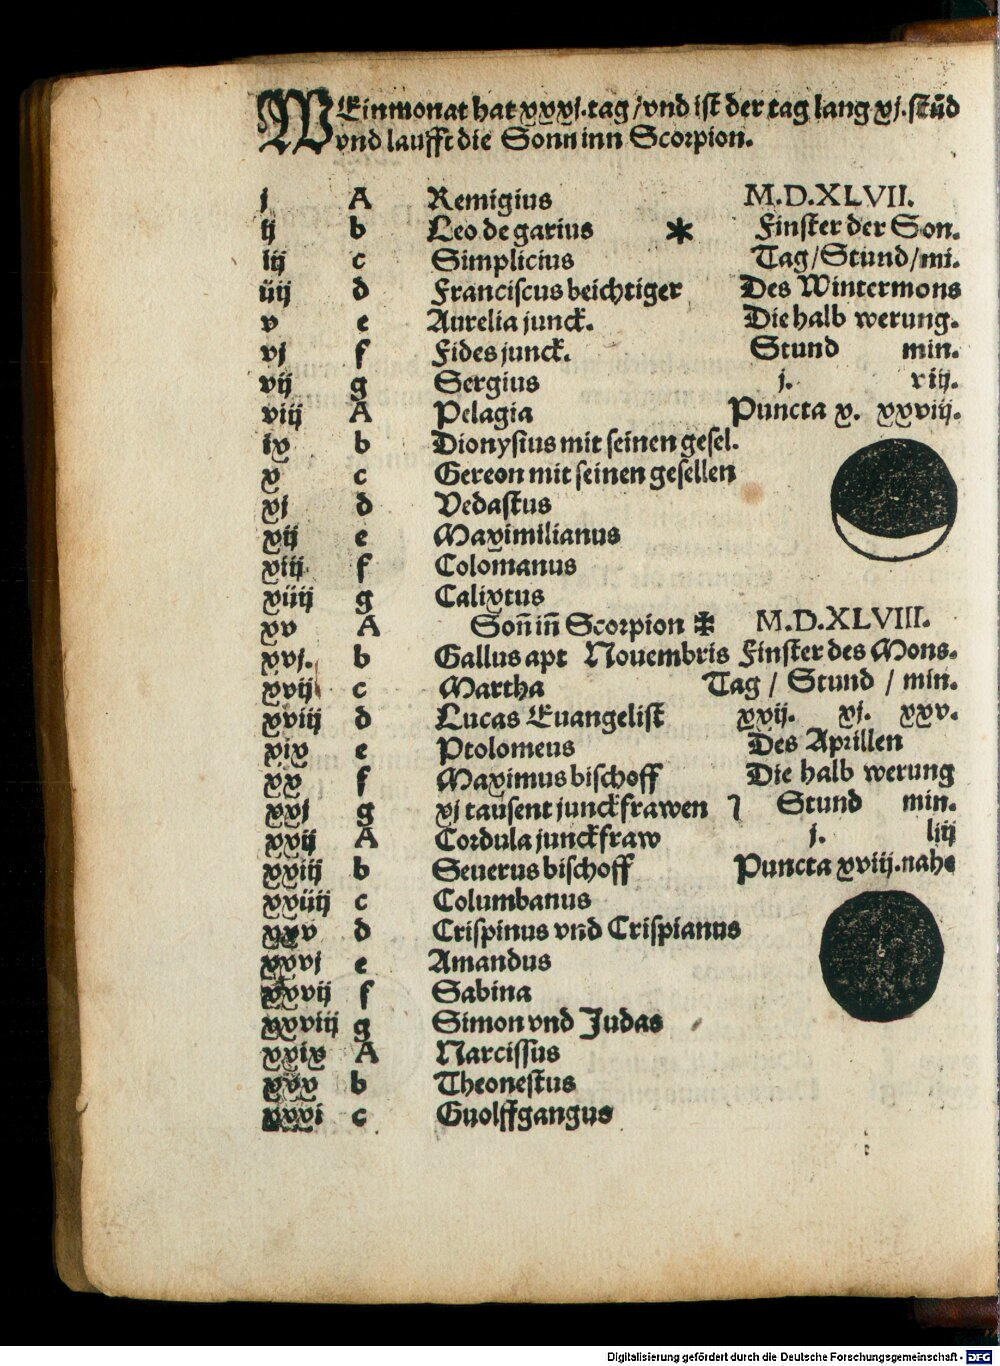 WEinmonat hat xxxj.tag /vnd ist der tag lang xj.stũd
vnd laufft die Sonn inn Scorpion.
j A Remigius M.D.XLVII.
ij b Leo de garius * Finster der Son.
iij c Simplicius Tag/Stund/mi.
iiij d Franciscus beichtiger Des Wintermons
v e Aurelia junck. Die halb werung.
vj f Fides junck. Stund min.
vij g Sergius j. vij.
viij A Pelagia Puncta x. xxviij.
ix b Dionysius mit seinen gesel.
x c Gereon mit seinen gesellen
xj d Vedastus
xij e Maximilianus
xiij f Colomanus
xiiij g Calixtus
xv A Soñ iñ Scorpion ✠ M.D.XLVIII.
xvj. b Gallus apt Nouembris Finster des Mons.
xvij c Martha Tag / Stund / min.
xviij d Lucas Euangelist xvij. xj. xxv.
xix e Ptolomeus Des Aprillen
xx f Maximus bischoff Die halb werung
xxj g xj tausent junckfrawen Stund min.
xxij A Cordula junckfraw j. liij
xxiij b Seuerus bischoff Puncta xviij.nahe
xxiiij c Columbanus
xxv d Crispinus vnd Crispianus
xxvj e Amandus
xxvij f Sabina
xxviij g Simon vnd Judas
xxix A Narcissus
xxx b Theonestus
xxxi c Guolffgangus
Digitalisierung gefördert durch die Deutsche Forschungsgemeinschaft - DFG